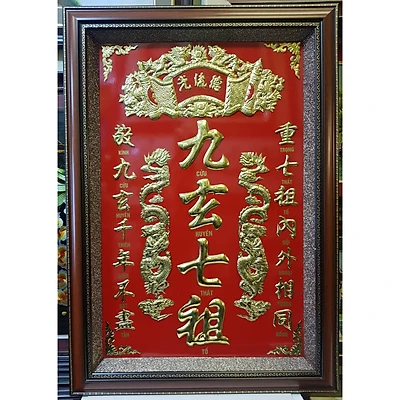 德後光
重七祖內外相同
TRỌNG THẤT TỔ
九玄七祖
CỬU HUYỀN THẤT TỔ
敬九玄千年不盡
KÍNH CỬU HUYỀN THIÊN